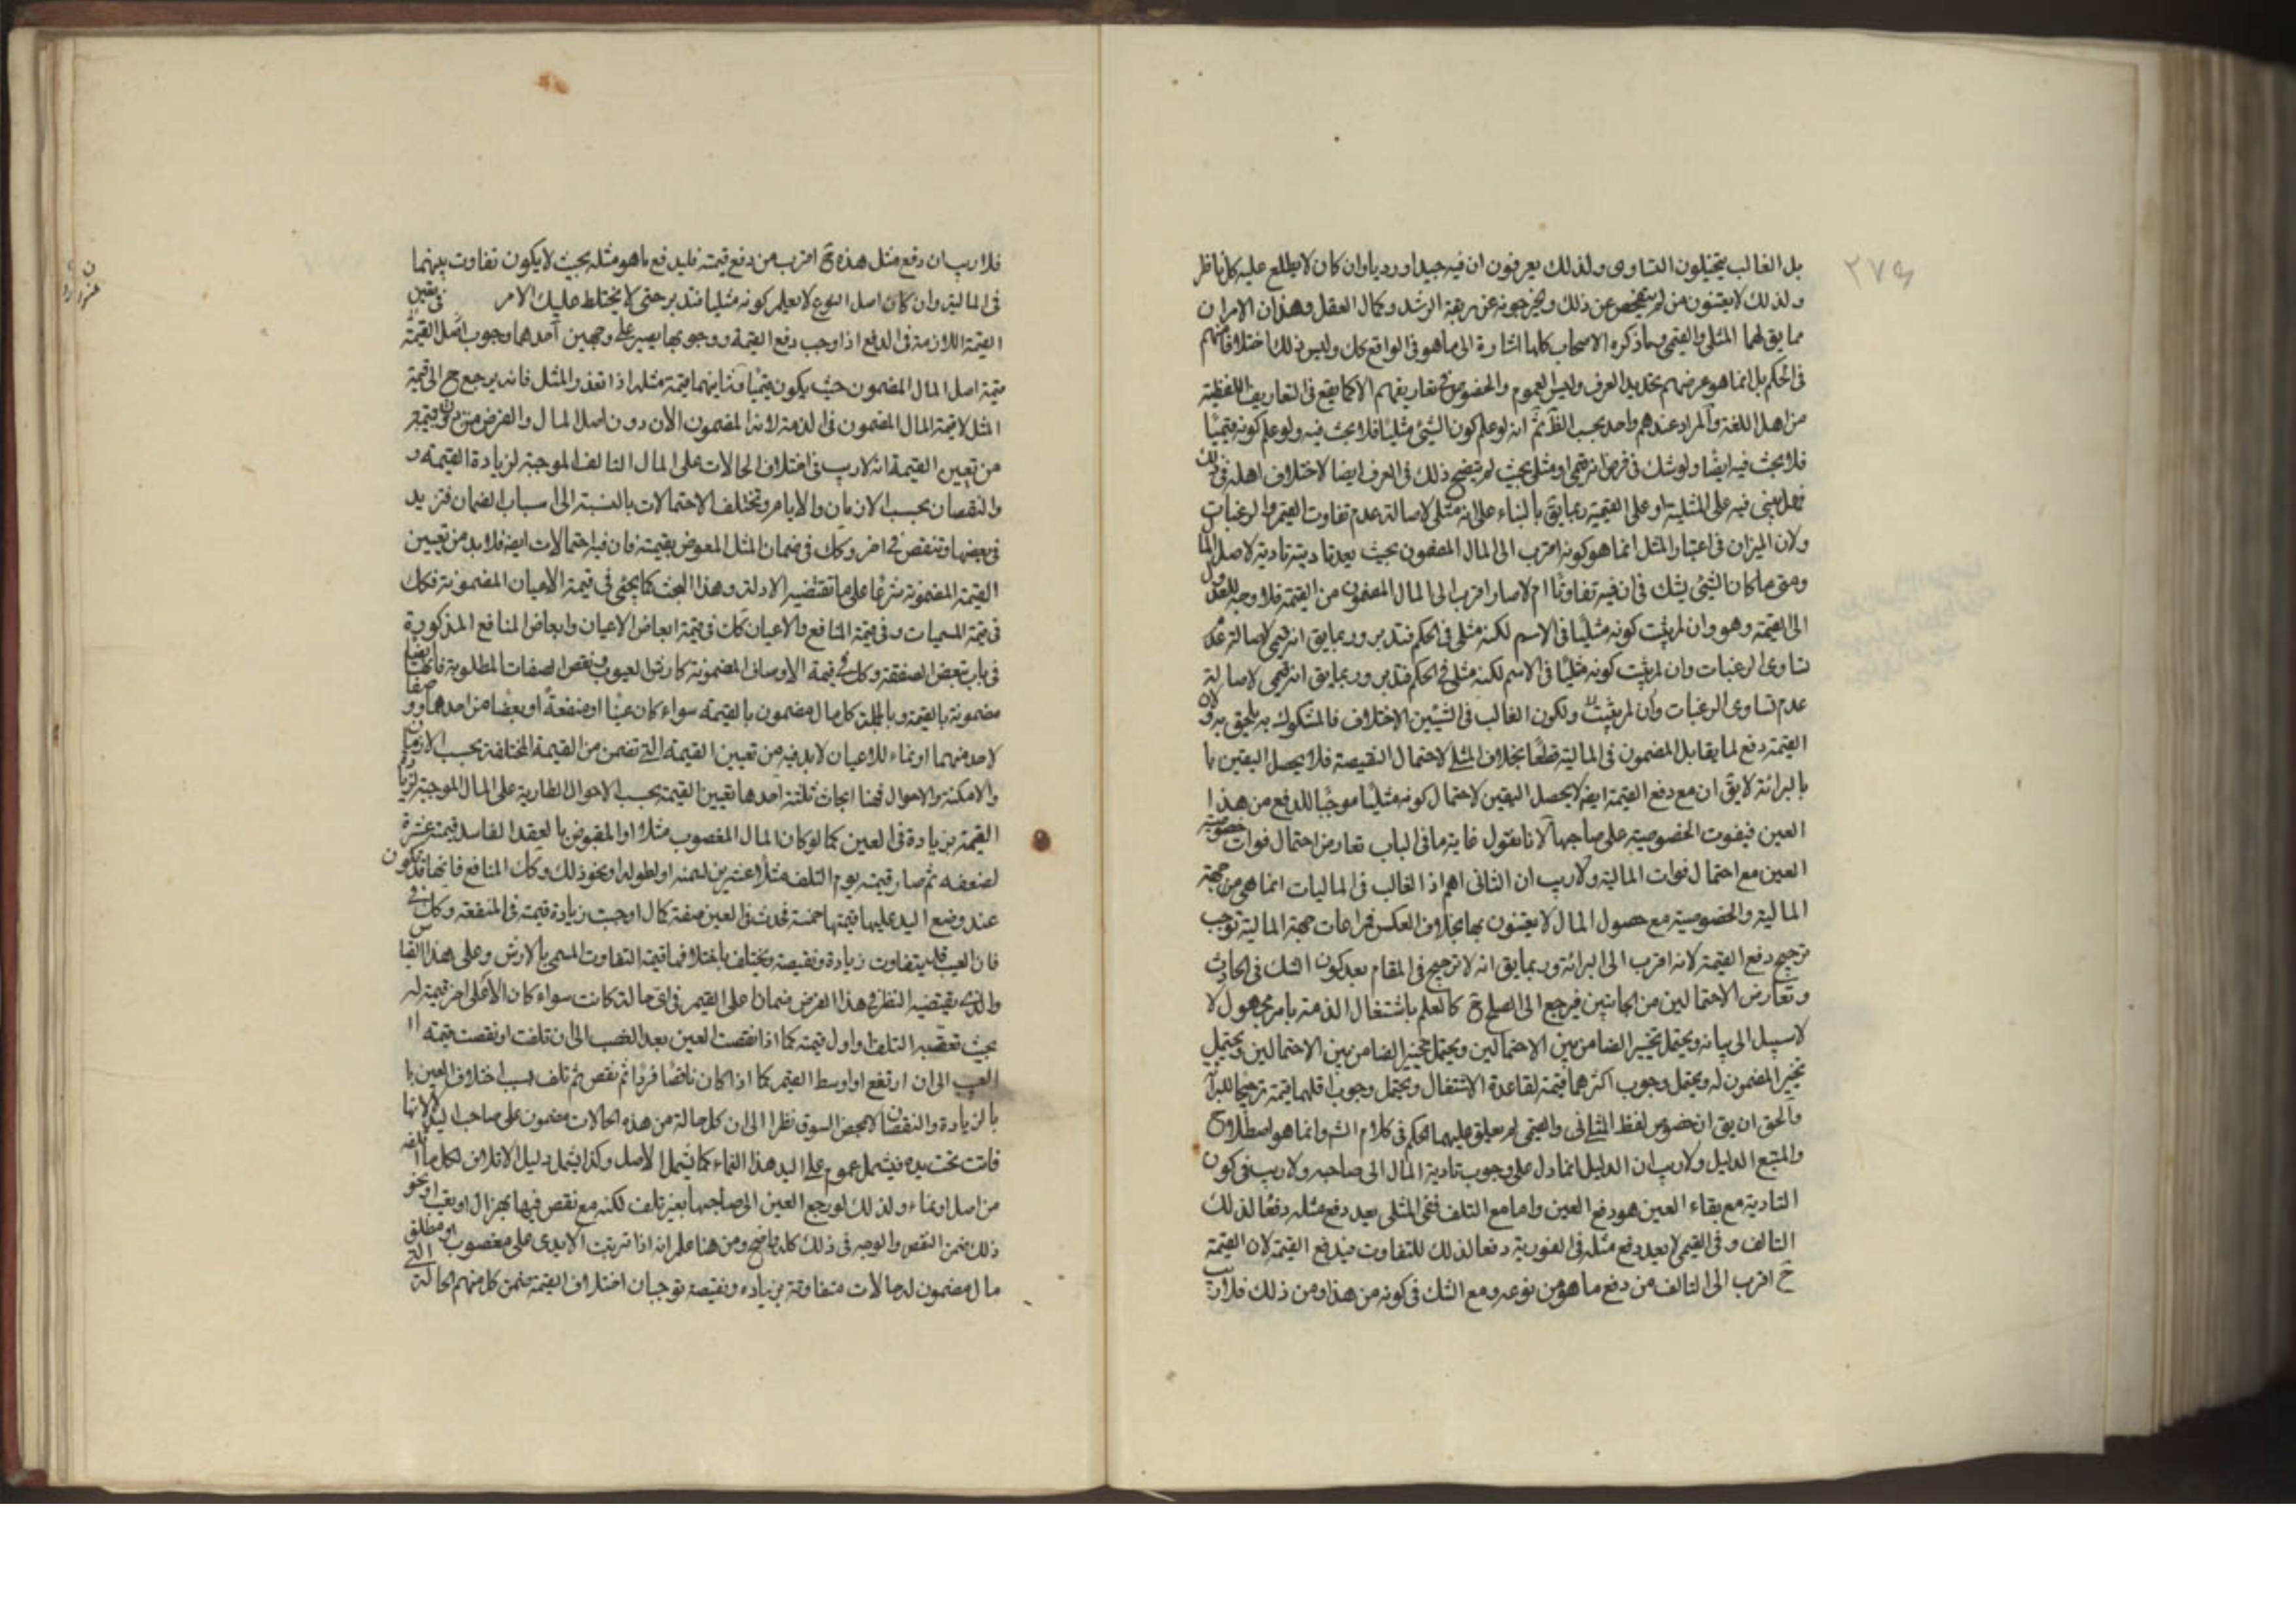 ۲۷۶
بل الغالب يتخيلون التساوى ولذلك يعرفون ان فيه جيدا ورديا وان كان لا يطلع عليه كل ناظر
ولذلك لا يعتنون من لم يتفحص عن ذلك ويخرجونه عن ربقة الرشد وكمال العقل وهذان الامران
مما يق لهما المثلى والقيمى وما ذكره الاصحاب كلها اشارة الى ما هو فى الواقع كك وليس ذلك اختلافا منهم
فى الحكم بل انما هو غرضهم تحديد العرف وليس العموم والخصوص فى تعاريفهم الا كما يقع فى التعاريف اللفظية
من اهل اللغة والمراد عندهم واحد بحسب الظ ثم انه لو علم كون الشئ مثليا فلا بحث فيه ولو علم كونه قيميًا
فلا بحث فيه ايضًا ولو شك فى فرض انه قيمى او مثلى بحيث لم يتضح ذلك فى العرف ايضا لاختلاف اهله فى ذلك
فهل يبنى فيه على المثلية او على القيمية ربما يق بالبناء على انه مثلى لاصالة عدم تفاوت القيم والرغبات
ولان الميزان فى اعتبار المثل انما هو كونه اقرب الى المال المضمون بحيث يعد تاديته تادية لاصل المال
ومتى ما كان الشئ يشك فى ان فيه تفاوتًا ام لا صار اقرب الى المال المضمون من القيمة فلا وجه للعدول
الى القيمة وهو وان لم يثبت كونه مثليًا فى الاسم لكنه مثلى فى الحكم فتدبر وربما يق انه قيمى لاصالة عدم
تساوى الرغبات وان لم يثبت كونه مثليًا فى الاسم لكنه مثلى فى الحكم فتدبر وربما يق انه قيمى لاصالة
عدم تساوى الرغبات وان لم يثبت ولكون الغالب فى الشيئين الاختلاف فالمشكوك به يلحق به ولان
القيمة دفع لما يقابل المضمون فى المالية قطعًا بخلاف المثلى لاحتمال النقيصة فلا يحصل اليقين با
بالبرائة لا يق ان مع دفع القيمة ايضا لا يحصل اليقين لاحتمال كونه مثليًا موجبًا للدفع من هذا
العين فيفوت الخصوصية على صاحبها لانا نقول غاية ما فى الباب تعارض احتمال فوات خصوصية
العين مع احتمال فوات المالية ولا ريب ان الثانى اهم اذ الغالب فى الماليات انما هى من جهة
المالية والخصوصية مع حصول المال لا يعتنون بها بخلاف العكس فمراعات جهة المالية توجب
ترجيح دفع القيمة لانه اقرب الى البرائة وربما يق انه لا ترجيح فى المقام بعد كون الشك فى الحادث
وتعارض الاحتمالين من الجانبين فيرجع الى الصلح ح كالعلم باشتغال الذمة بامر مجهول لا
لا سبيل الى بيانه ويحتمل تخيير الضامن بين الاحتمالين ويحتمل تخيير الضامن بين الاحتمالين ويحتمل
تخيير المضمون له ويحتمل وجوب اكثرهما قيمة لقاعدة الاشتغال ويحتمل وجوب اقلهما قيمة ترجيحا للبرا
والحق ان يق ان خصوص لفظ المثلى والقيمى لم يعلق عليهما الحكم فى كلام الش وانما هو اصطلاح
والمتبع الدليل ولا ريب ان الدليل انما دل على وجوب تادية المال الى صاحبه ولا ريب فى كون
التادية مع بقاء العين هو دفع العين واما مع التلف ففى المثلى يعد دفع مثله دفعًا لذلك
التالف وفى القيمى لا يعد دفع مثله فى الفورية دفعا لذلك للتفاوت فيدفع القيمة لان القيمة
ح اقرب الى التالف من دفع ما هو من نوعه ومع الشك فى كونه من هذا ومن ذلك فلا ريب
فلا ريب ان دفع مثل هذه ح اقرب من دفع قيمته فليدفع ما هو مثله بحيث لا يكون تفاوت بينهما
فى المالية وان كان اصل النوع لا يعلم كونه مثليا فتدبر حتى لا يختلط عليك الامر فى تعيين
القيمة اللازمة فى الدفع اذا وجب دفع القيمة ووجوبها يصير على وجهين احدهما وجوب اصل القيمة
قيمة اصل المال المضمون حيث يكون قيميًا وثانيهما قيمة مثله اذا تعذر المثل فانه يرجع ح الى قيمة
المثل لا قيمة المال المضمون فى الذمة لانه المضمون الان دون اصل المال والغرض
من تعيين القيمة انه لا ريب فى اختلاف الحالات على المال التالف الموجبة لزيادة القيمة و
والنقصان بحسب الازمان والايام وتختلف الاحتمالات بالنسبة الى اسباب الضمان فتزيد
فى بعضها وتنقص فى اخر وكك فى ضمان المثل المعوض بقيمته فان فيه احتمالات ايضا فلا بد من تعيين
القيمة المضمونة شرعًا على ما تقتضيه الادلة وهذا البحث كما يجئ فى قيمة الاعيان المضمونة فكك
فى قيمة المسميات وفى قيمة المنافع والاعيان كك فى قيمة ابعاض الاعيان وابعاض المنافع المذكورة
فى باب تبعض الصفقة وكك فى قيمة الاوصاف المضمونة كارش العيوب ونقص الصفات المطلوبة فانها ايضا
مضمونة بالقيمة وبالجملة كل مال مضمون بالقيمة سواء كان عينًا او منفعة او بعضًا من احدهما او وصفا
لاحد منهما او نماء للاعيان لا بد فيه من تعيين القيمة التى تضمن من القيمة المختلفة بحسب الازمان
والامكنة والاحوال فهنا ابحاث ثلثة احدها تعيين القيمة بحسب الاحوال الطارية على المال الموجبة لزيادة
القيمة بزيادة فى العين كما لو كان المال المغصوب مثلا او المقبوض بالعقد الفاسد قيمته عشرة
لضعفه ثم صار قيمته يوم التلف مثلا عشرين لسمنه او لطوله او نحو ذلك وكك المنافع فانها قد تكون
عند وضع اليد عليها قيمتها خمسة فحدث فى العين صفة كمال اوجبت زيادة قيمة فى المنفعة وكك فى
فان العيب قد يتفاوت زيادة ونقيصة ويختلف باختلافها قيمة التفاوت المسمى بالارش وعلى هذا القياس
والذى يقتضيه النظر فى هذا الفرض ضمان اعلى القيم فى اى حالة كانت سواء كان الاعلى اخر قيمة له
بحيث تعقبه التلف او اول قيمته كما اذا نقصت العين بعد الغصب الى ان تلفت او نقصت قيمته
العيب الى ان ارتفع او اوسط القيم كما اذا كان ناقصا فزاد ثم نقص ثم تلف بسبب اختلاف العين با
بالزيادة والنقصان لا بمحض السوق نظرا الى ان كل حالة من هذه الحالات مضمون على صاحب اليد لانها
فاتت تحت يده فيشمل عموم على اليد هذا النماء كما يشمل الاصل وكذا يشمل دليل الاتلاف لكل ما
من اصل او نماء ولذلك لو رجع العين الى صاحبها بغير تلف لكنه مع نقص فيها بهزال او بعيب او نحو
ذلك ضمن النقص والوجه فى ذلك كله واضح ومن هنا علم انه اذا ترتبت الايدى على مغصوب او مطلق
مال مضمون له حالات متفاوتة بزيادة ونقيصة توجبان اختلاف القيمة ضمن كل منهم الحالة التى